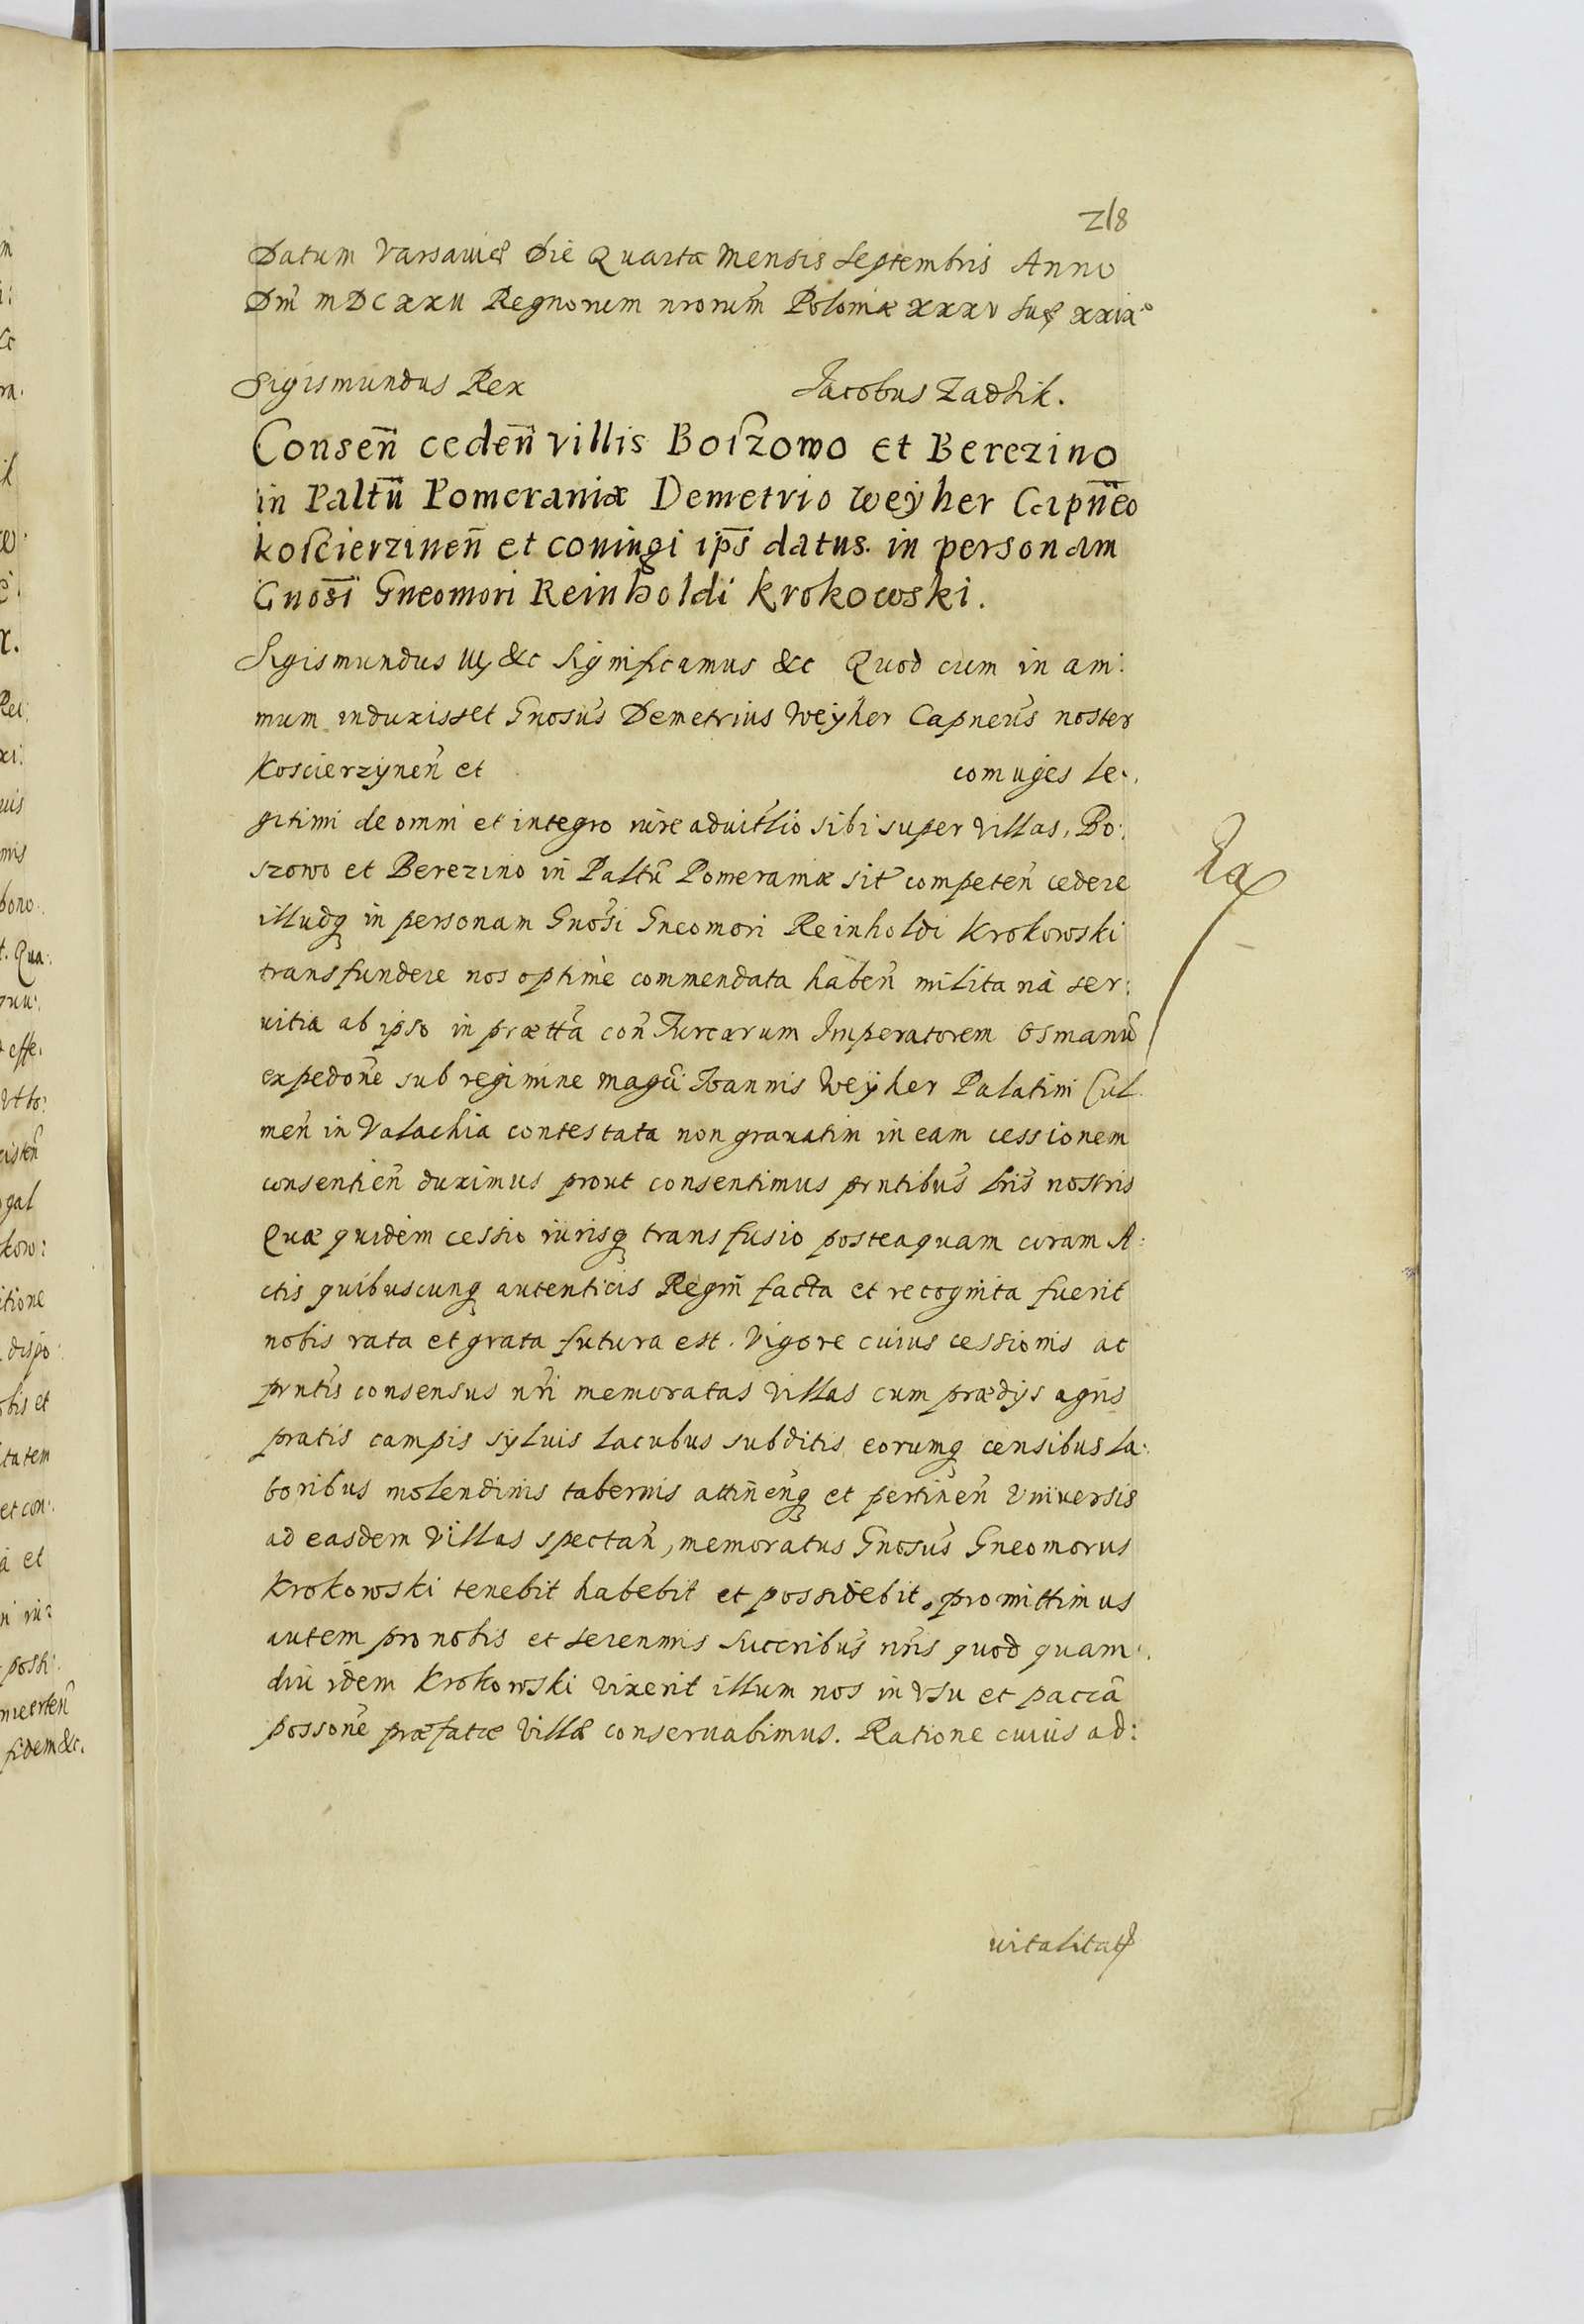 218
Datum Varsaviæ Die Quarta Mensis Septembris Anno
Dni MDCXXII Regnorum nrorum Poloniæ XXXV Sueæ XXIXo
Sigismundus Rex Jacobus Zadzik.
Consen ceden villis Boszowo et Berezino
in Paltu Pomeraniæ Demetrio Weÿher Capneo
koscierzinen et coniugi ips datus. in personam
Gnosi Gneomori Reinholdi Krokowski.
Sigismundus III &c Significamus &c Quod cum in ani:
mum induxisset Gnosus Demetrius Weÿher Capneus noster
Koscierzÿnen et coniuges le:
gitimi de omni et integro iure aduitlio sibi super villas, Bo:
szowo et Berezino in Paltu Pomeraniæ sit competen cedere
illudq in personam Gnosi Gneomori Reinholdi Krokowski
transfundere nos optimè commendata haben militaria ser:
uitia ab ipso in prætta con Turcarum Imperatorem Osmanu
expedone sub regimine magci Joannis Weÿher Palatini Cul
men in Valachia contestata non grauatim in eam cessionem
consentien duximus prout consentimus prntibus lris nostris
Quæ quidem cessio iurisq transfusio posteaquam coram A:
ctis quibuscunq autenticis Regni facta et recognita fuerit
nobis rata et grata futura est. Vigore cuius cessionis ac
prntis consensus nri memoratas Villas cum prædijs agris
pratis campis sÿluis lacubus subditis eorumq censibus la:
boribus molendinis tabernis attinenq et pertinen Vniuersis
ad easdem Villas spectan, memoratus Gnosus Gneomorus
Krokowski tenebit habebit et possidebit. promittimus
autem pro nobis et serennis Succribus nris quod quam:
diu idem Krokowski vixerit illum nos in vsu et pacca
possone præfatæ Villæ conseruabimus. Ratione cuius ad:
vitalitatis